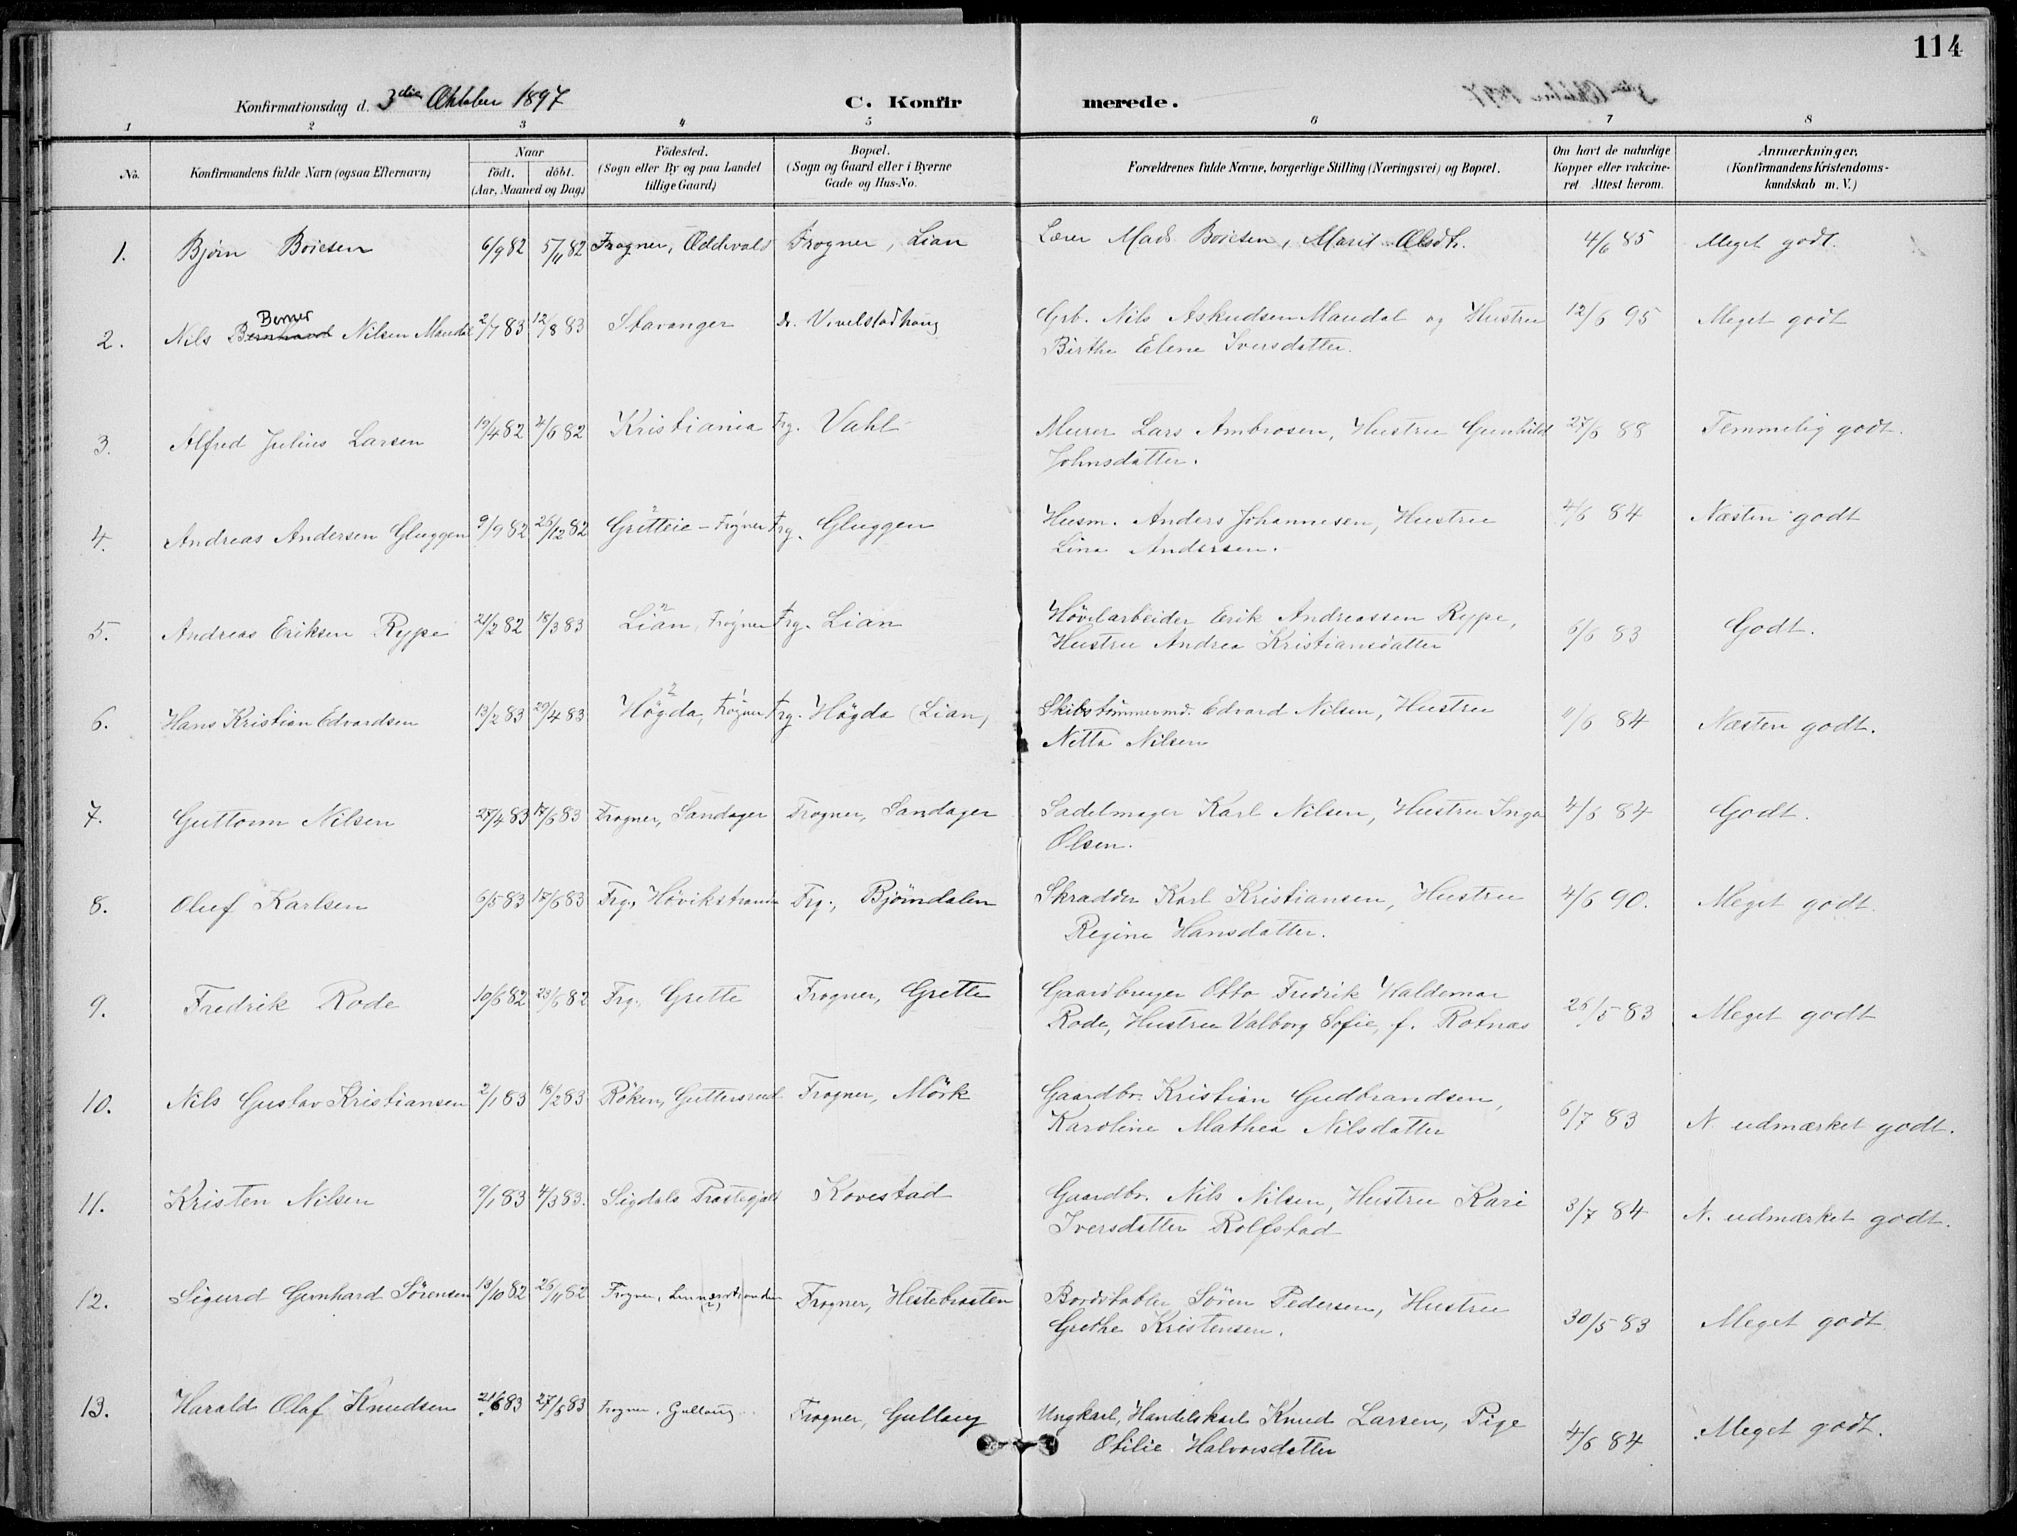 114
Konfirmationsdag d. 3die Oktober 1897 C. Konfirmerede.
1 2 3 4 5 6 7 8
No. Konfirmandens fulde Navn (ogsaa Efternavn) Naar födt. döbt. (Aar, Maaned og Dag) Födested. (Sogn eller By og paa Landet tillige Gaard) Bopæl. (Sogn og Gaard eller i Byerne Gade og Hus-No. Forældrenes fulde Navne, borgerlige Stilling (Næringsvei) og Bopæl. Om havt de naturlige Kopper eller vakcineret. Attest herom. Anmærkninger, (Konfirmandens Kristendomskundskab m. V.)
1. Bjørn Boiesen 6/9 82 5/11 82 Frogner, Oddevald Frogner, Lian Lærer Mads Boiesen, Marit Olsdt. 4/6 85 Meget godt.
2. Nils Bernhard Berner Nilsen Mandal 2/7 83 12/8 83 Stavanger Vivelstadhaug Grb. Nils Asknudsen Mandal og Hustru 12/6 95 Meget godt
Birthe Elene Iversdatter.
3. Alfred Julius Larsen 19/4 82 4/6 82 Kristiania Frg. Vahl Murer Lars Ambrosen, Hustru Gunhild 27/6 88 Temmelig godt.
Johnsdatter.
4. Andreas Andersen Gluggen 9/9 82 26/12 82 Grötteie - Frogner Frg. Gluggen Husm. Anders Johannesen, Hustru 4/6 84 Næsten godt
Lina Andersen.
5. Andreas Eriksen Rype 21/2 82 18/3 83 Lian, Frogner Frg. Lian Hövlarbeider Erik Andreassen Rype, 6/6 83 Godt.
Hustru Andrea Kristiansdatter
6. Hans Kristian Edvardsen 13/2 83 29/4 83 Högda, Frogner Frg. Högda (Lian) Skibstømmermd. Edvard Nilsen, Hustru 11/6 84 Næsten godt.
Netta Nilsen
7. Guttorm Nilsen 27/4 83 17/6 83 Frogner, Sandager Frogner, Sandager Sadelmager Karl Nilsen, Hustru Inga 4/6 84 Godt.
Olsen.
8. Oluf Karlsen 6/5 83 17/6 83 Frg., Hövikstranda Frg., Bjørndalen Skrædder Karl Kristiansen, Hustru 4/6 90. Meget godt.
Regine Hansdatter.
9. Fredrik Rode 10/6 82 23/6 82 Frg., Grette Frogner, Grette Gaardbruger Otto Fredrik Waldemar 26/5 83 Meget godt
Rode, Hustru Valborg Sofie, f. Rotnas
10. Nils Gustav Kristiansen 2/1 83 18/2 83 Röken, Guttersrud Frogner, Mörk Gaardbr. Kristian Gudbrandsen, 6/7 83 N. udmærket godt.
Karoline Mathea Nilsdatter
11. Kristen Nilsen 9/1 83 4/3 83. Sigdals Præstegjeld Kovestad Gaardbr. Nils Nilsen, Hustru Kari 3/7 84 N. udmærket godt.
Iversdatter Rolfstad
12. Sigurd Gernhard Sörensen 19/10 82 26/11 82 Frogner, Frogner, Hestebraaten Bordstabler Sören Pedersen, Hustru 30/5 83 Meget godt
Grethe Kristensen.
13. Harald Olaf Knudsen 83 27/5 83 Frogner, Gullaug Frogner, Gullaug Ungkarl, Handelskarl Knud Larsen, Pige 4/6 84 Meget godt.
Otilie Halvorsdatter